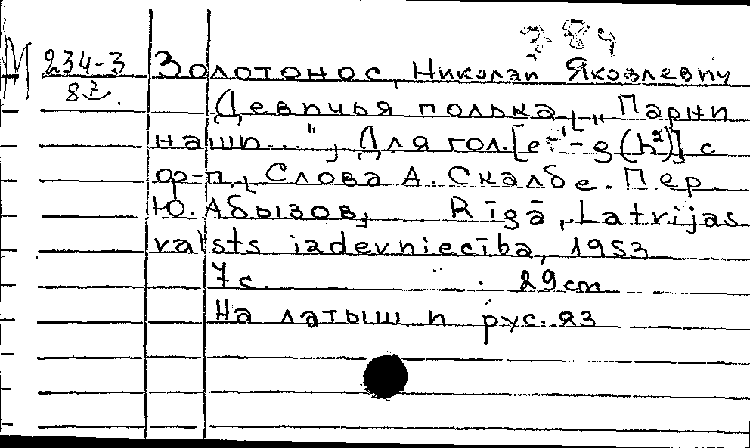 784
М 234-3 Золотонос, Николай Яковлевич
82 Девичья полька, [„Парни
наши..."], Для гол. [e¹-g(h²)] с
ф-п., Слова А. Скалбе. Пер.
Ю. Абызов, Rīgā, Latvijas
valsts izdevniecība, 1953
7 с. 29 cm
На латыш и рус. яз